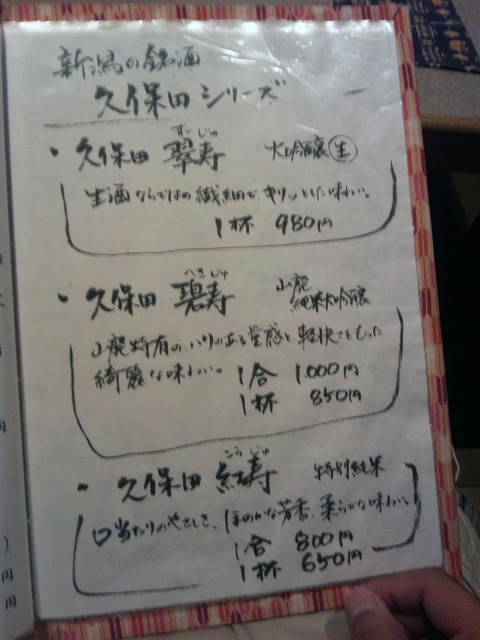 新潟の銘酒
久保田シリーズ
・久保田 翠寿 大吟醸 生
すいじゅ
生酒ならではの繊細で、キリッとした味わい。
1杯 980円
・久保田 碧寿 山廃
へきじゅ
純米大吟醸
山廃特有の、ハリのある質感と軽快さをもった
綺麗な味わい。
1合 1,000円
1杯 850円
・久保田 紅寿 特別純米
こうじゅ
口当たりのやさしさ、ほのかな芳香、柔らかな味わい。
1合 800円
1杯 650円
円
)
円
円